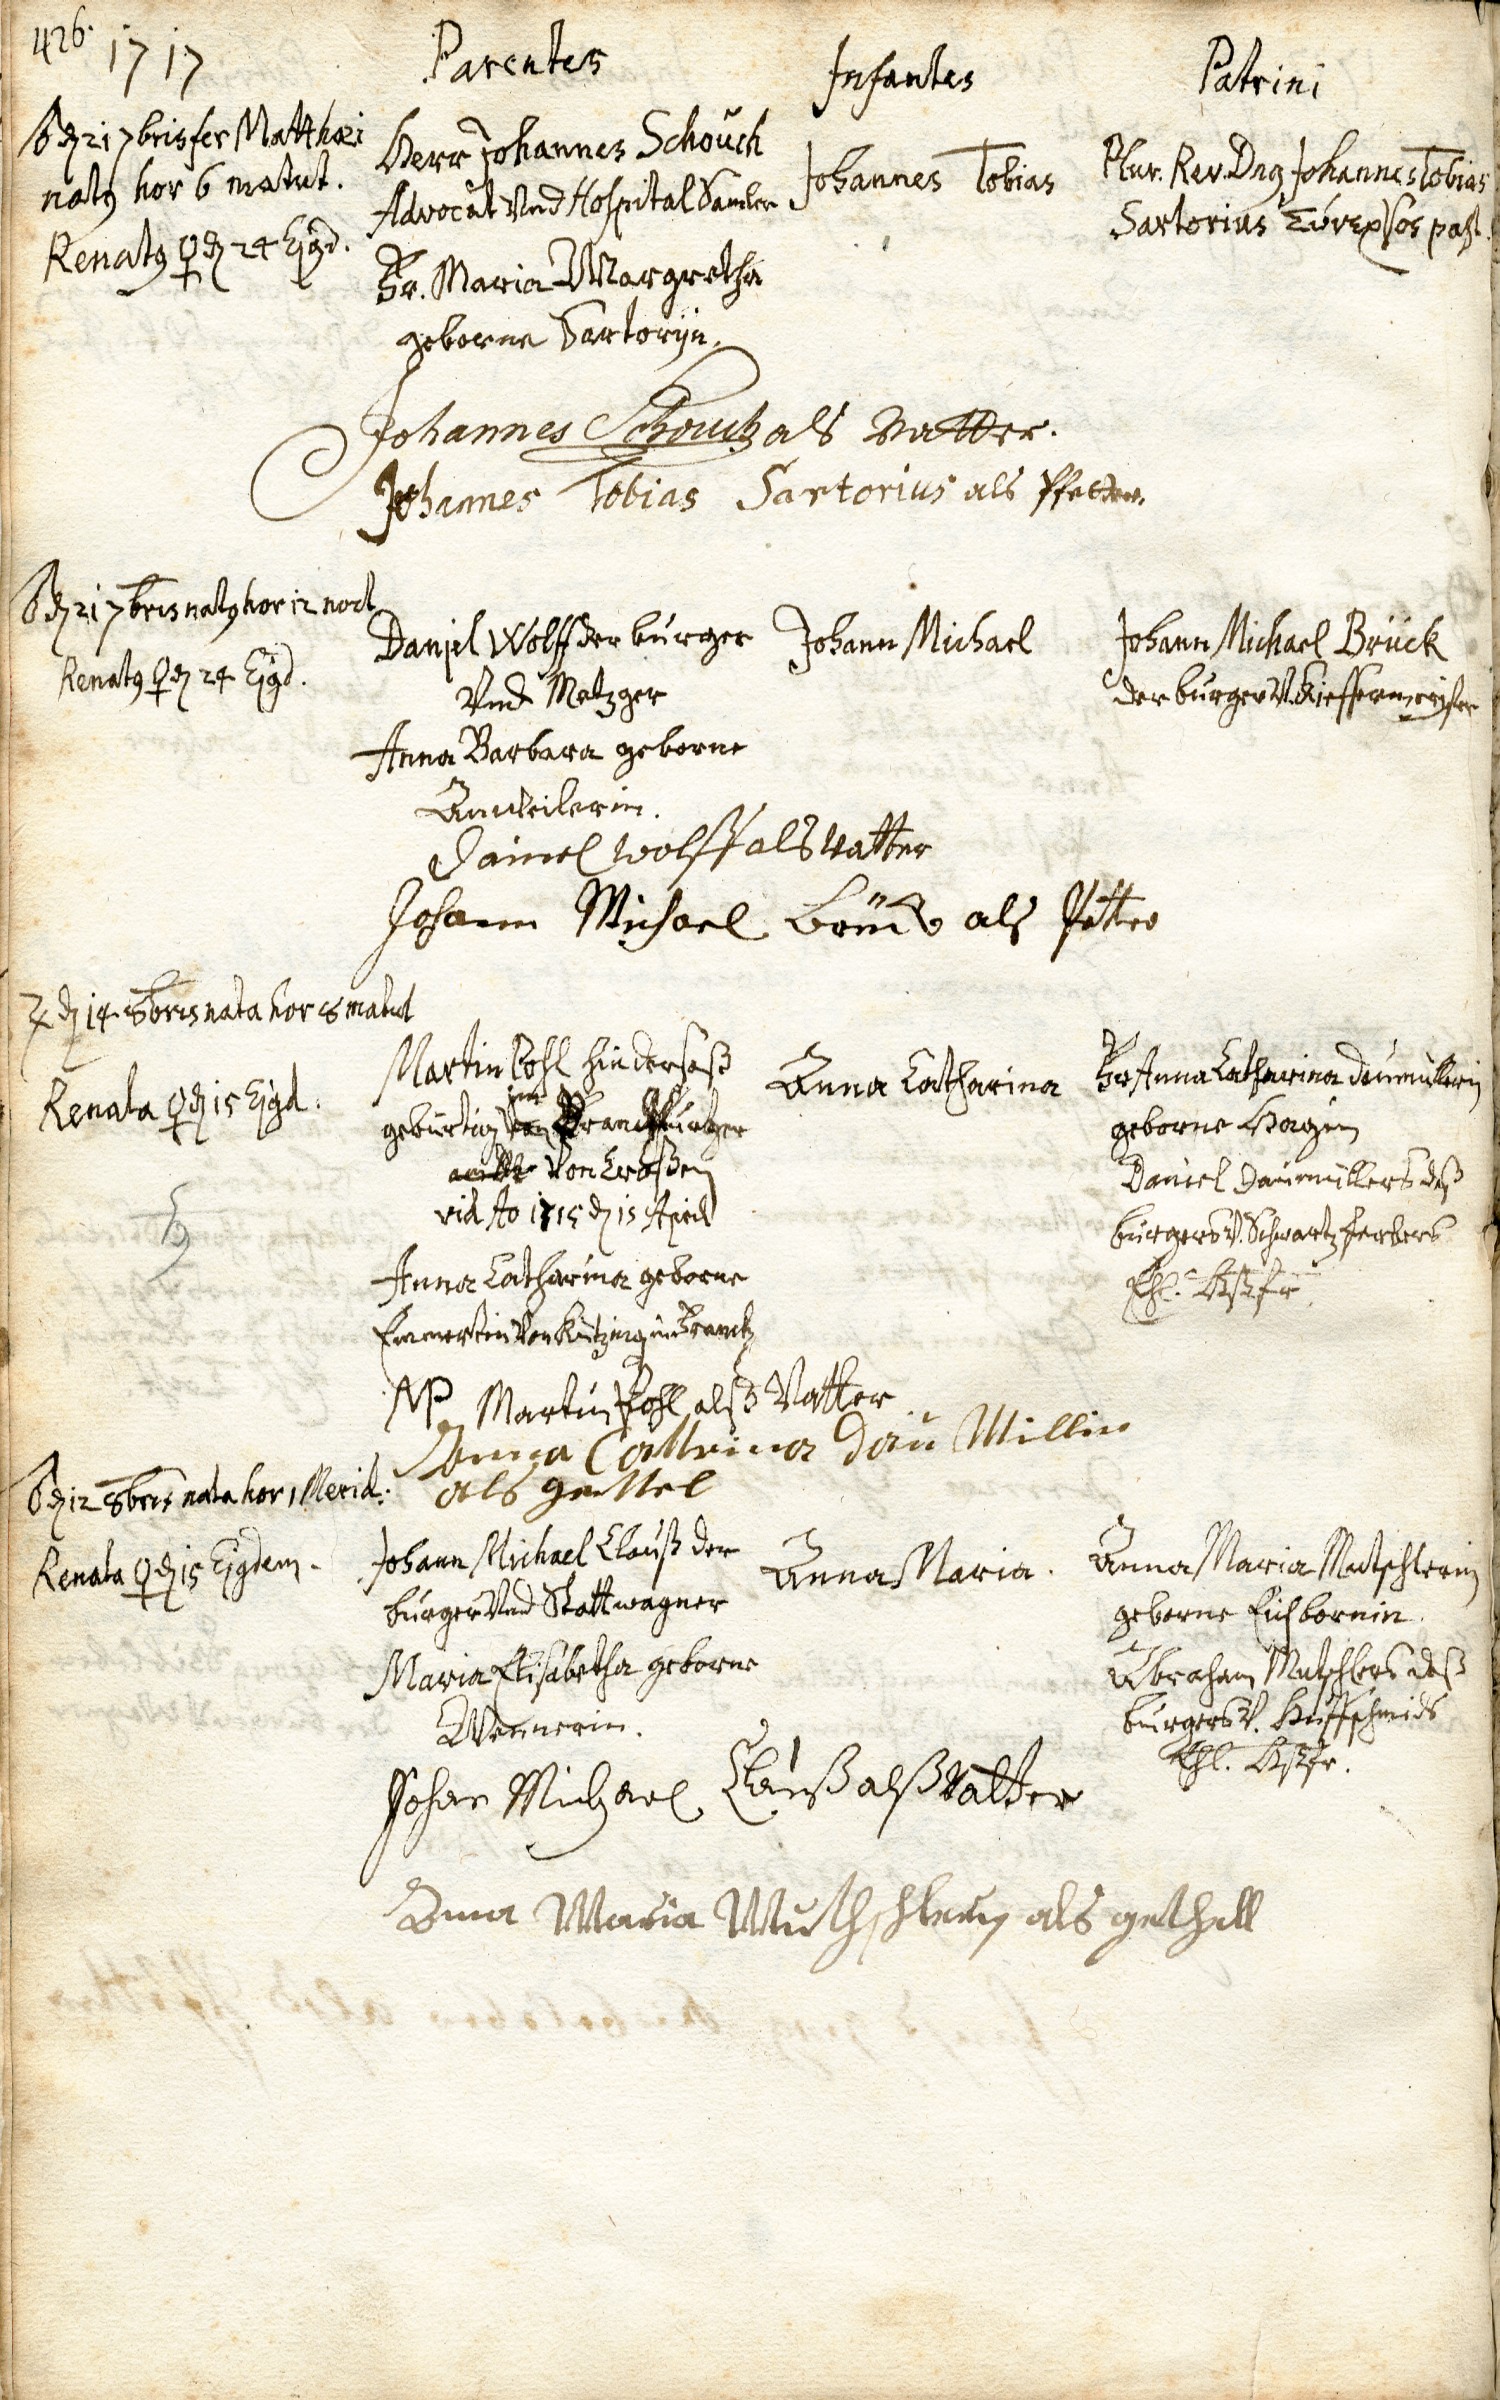 426.
1717
Parentes
Infantes
Patrini
♂ d 21 7bris fer Matthæi
natq hor 6 matut.
Renatq ♀ d 24 Ejqd.
Herr Johannes Schouch
Advocat Vnd Hospital Samler
Fr. Maria Margretha
geborne Sartorijn.
Johannes Tobias
Plur. Rev. Dnq Johannes Tobias
Sartorius past.
Johannes Schouch als Vatter.
Johannes Tobias Sartorius als Pfetter.
♂ d 21 7bris natq hor 12 noct
Renatq ♀ d 24 Ejqd.
Daniel Wolff der burger
Vnd Metzger
Anna Barbara geborne
Anweilerin.
Johann Michael
Johann Michael Brück
der burger V. Kieffermeister
Daniel Wolff als Vatter
Johann Michael Brück als Petter
♃ d 14 8bris nata hor 8 matut
Renata ♀ d 15 Ejqd.
Martin Pohl hindersaß
gebürtig im
von
vid Ao 1715 d 15 April
Anna Catharina geborne
Emmertin Von Kitzing in Franck
Anna Catharina
Fr Anna Catharina Deumüllerin
geborne Hagin
Daniel Daumüllers deß
burgers V. Schwartz ferbers
Ehl. Haßfr
MP Martin Pohl alß Vatter
Anna Cattrina Dau Millin
als gettel
♂ d 12 8bris nata hor 1 Merid.
Renata ♀ d 15 Ejqdem.
Johann Michael Clauß der
burger Vnd Stattwagner
Maria Elisabetha geborne
Wennerin.
Anna Maria.
Anna Maria Mutschlerin
geborne Eichbornin.
Abraham Mutschlers deß
burgers V. Huffschmids
Ehl. Haßfr.
Johan Michael Clauß alß Vatter
Anna Maria Muthschlerin als gethell